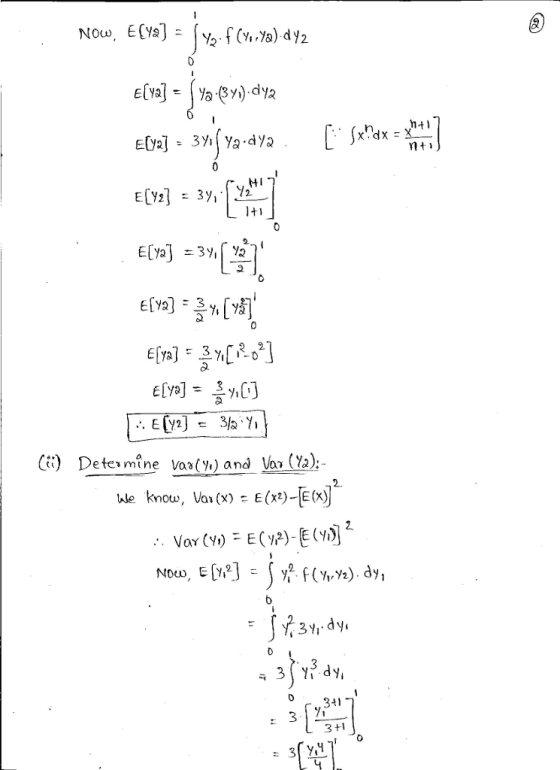 ②
Now, E[Y2] = ∫₀¹ y2 . f(y1,y2) . dy2
E[Y2] = ∫₀¹ y2 . (3y1) . dy2
E[Y2] = 3y1 ∫₀¹ y2 . dy2 [∵ ∫xⁿ dx = xⁿ⁺¹/n+1]
E[Y2] = 3y1 . [y2¹⁺¹/1+1]₀¹
E[Y2] = 3y1 [y2²/2]₀¹
E[Y2] = 3/2 y1 [y2²]₀¹
E[Y2] = 3/2 y1 [1² - 0²]
E[Y2] = 3/2 y1 [1]
∴ E[Y2] = 3/2 . y1
(ii) Determine Var(Y1) and Var(Y2):-
We know, Var(x) = E(x²) - [E(x)]²
∴ Var(Y1) = E(Y1²) - [E(Y1)]²
Now, E[Y1²] = ∫₀¹ y1² . f(y1,y2) . dy1
= ∫₀¹ y1² 3y1 . dy1
= 3 ∫₀¹ y1³ . dy1
= 3 . [y1³⁺¹/3+1]₀¹
= 3 [y1⁴/4]₀¹